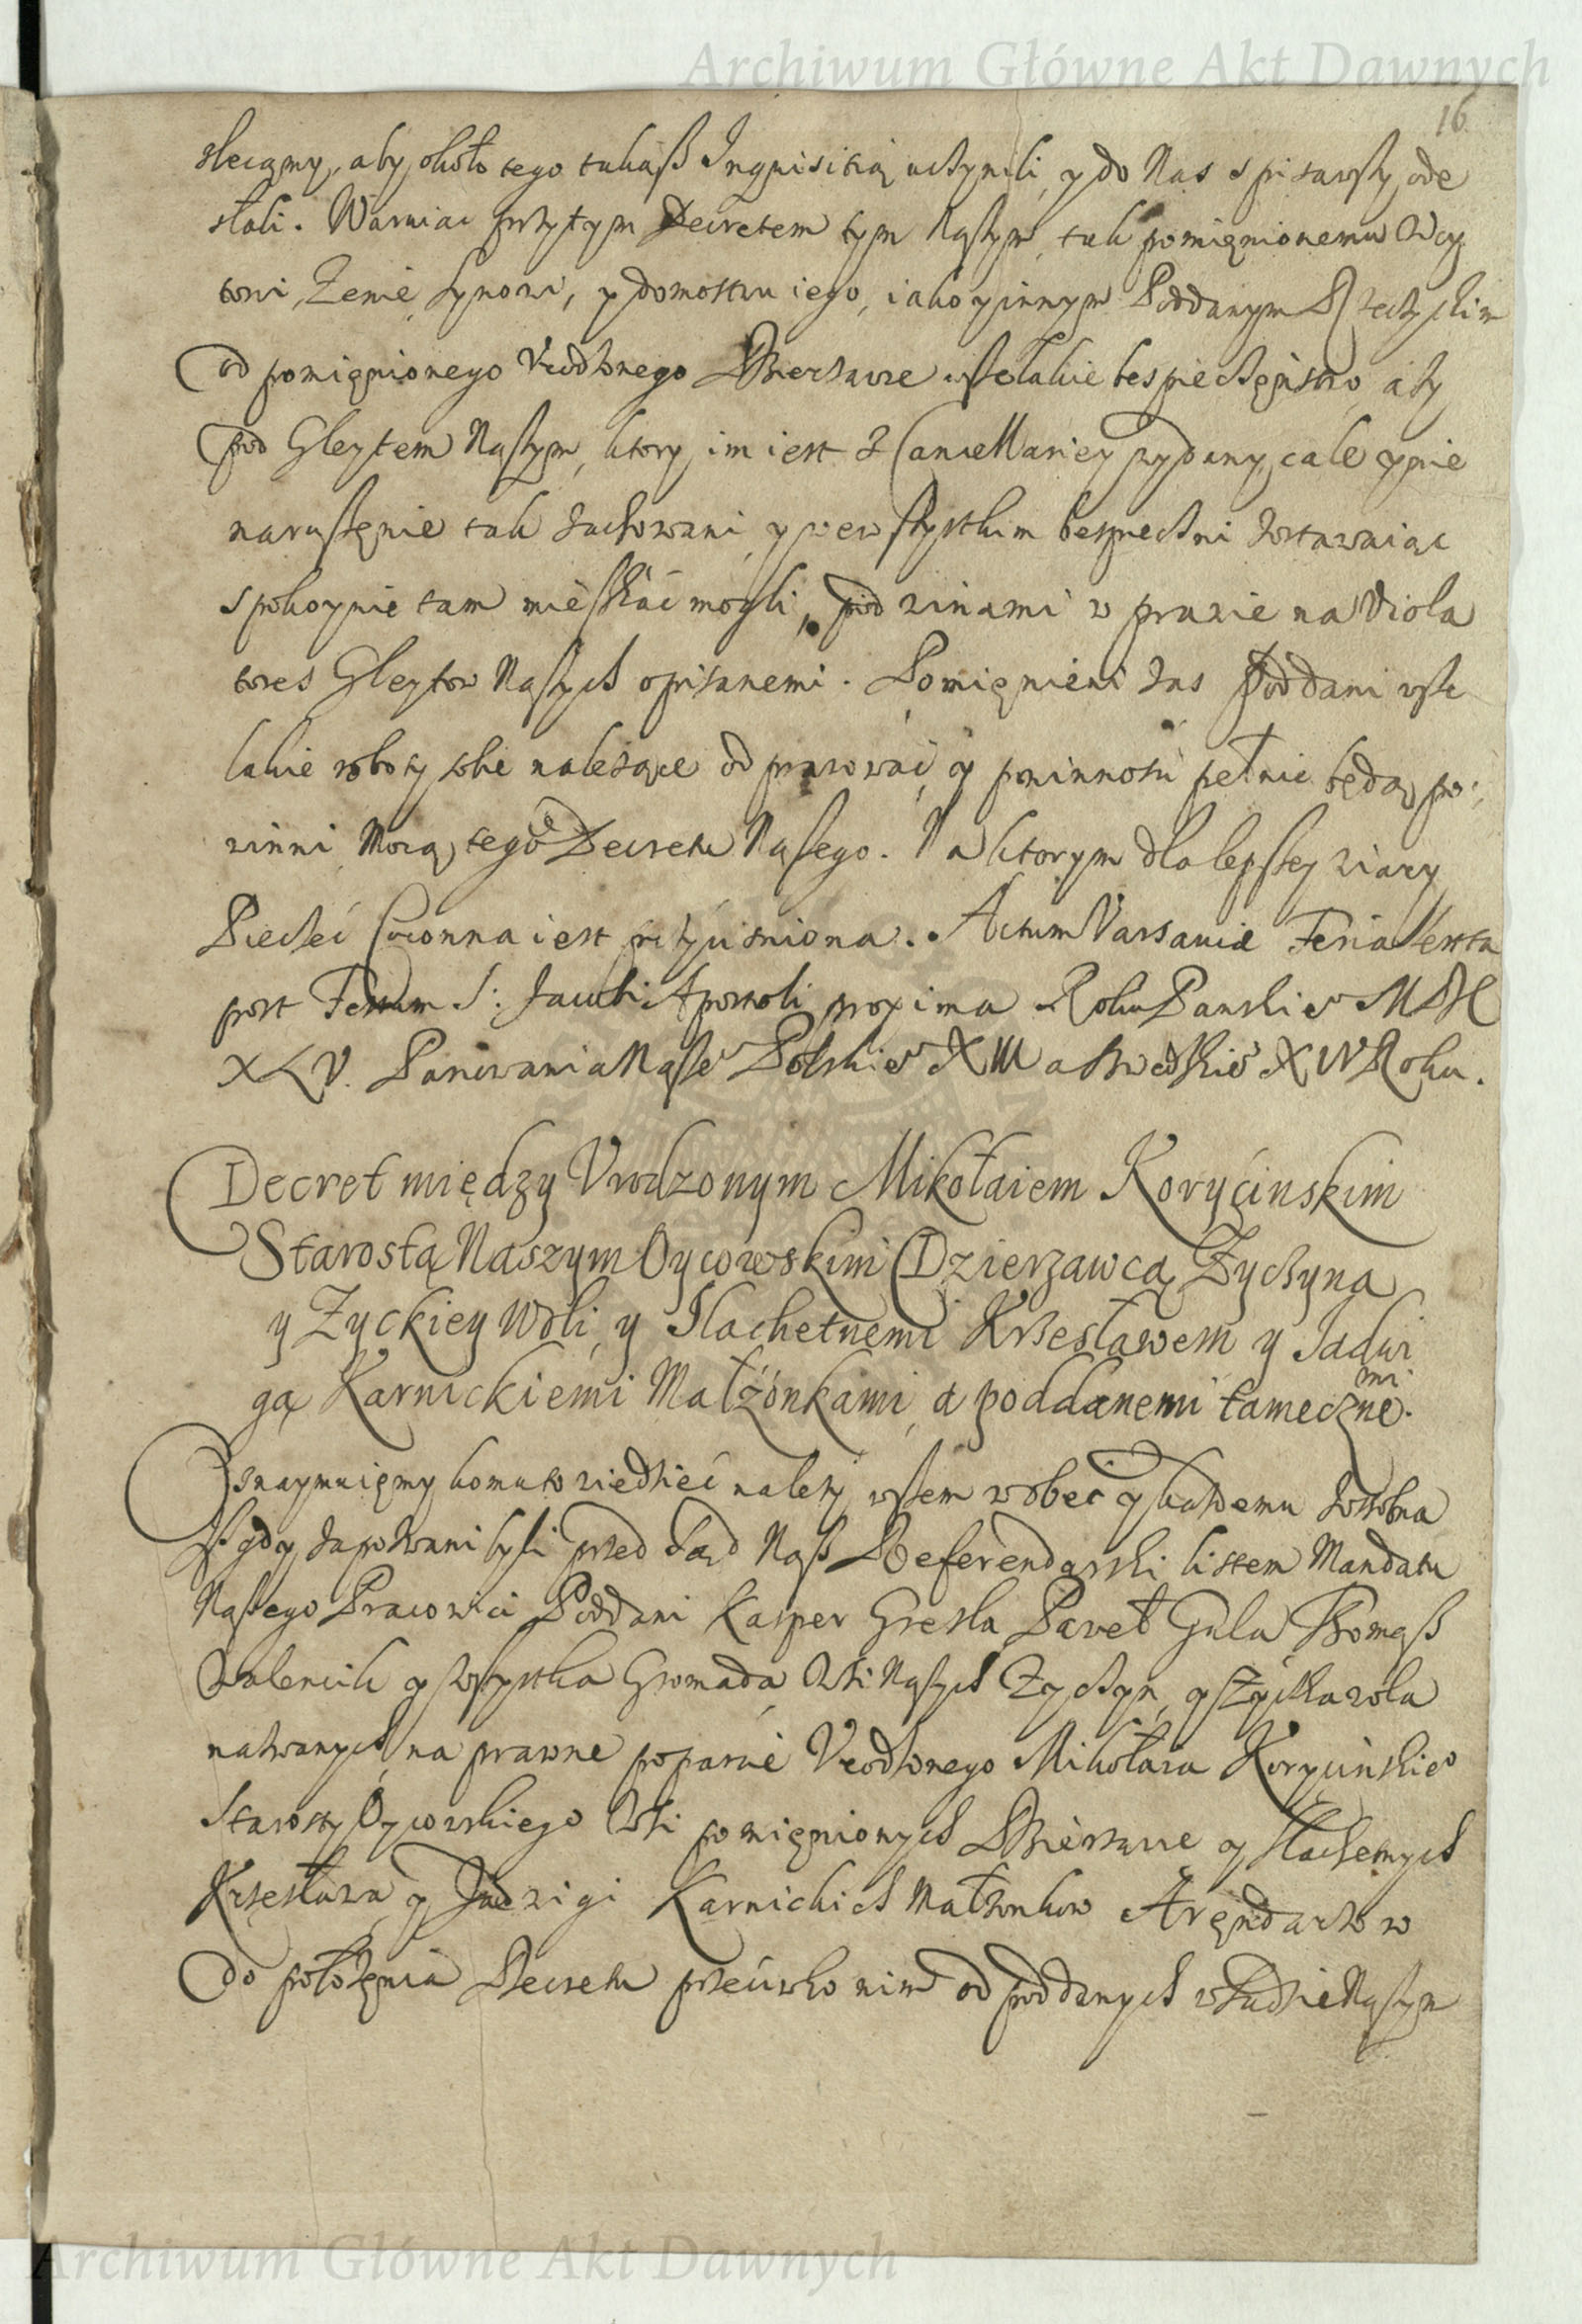 Archiwum Główne Akt Dawnych
16
zlecamy, aby około tego takąß Inquisitią uczynili, y do Nas spisawszy ode
słali. Waruiąc przytym Decretem tym Naszym, tak pomienionemu Woy
towi Zenie, Synowi, y domostwu iego, iako y innym Poddanym
od pomienionego Vrodzonego Dzierzawce wszelakie bespieczenstwo, aby
pod Gleytem Naszym, ktory im iest z Cancellariey wydany, cale y nie
naruszenie tak zachowani, y we wszystkim bespieczni zostawaiąc
spokoynie tam mieszkać mogli, pod winami w prawie na Viola
tores Gleytow Naszych opisanemi. Pomienieni zas Poddani wsze
lakie roboty sobie nalezące odprawować, y powinnosci pełnic będą po
winni Mocą tego Decretu Naszego. Na ktorym dla lepszey wiary
Pieczęć Coronna iest przyciśniona. Actum Varsaviæ Feria Sexta
post Festum S: Jacobi Apostoli proxima Roku Panskieo MDC
XLV. Panowania Naszeo Polskieo XIII a Szwedzkieo XIV Roku.
Decret między Vrodzonym Mikołaiem Koryćinskim
Starostą Naszym Oycowskim Dzierzawcą Zychyna
y Zyckiey Woli, y Slachetnemi Krzesławem y Jadwi
gą Karnickiemi Małżonkami, a poddanemi tameczne.
mi
Oznaymuięmy komu to wiedzieć nalezy, wszem wobec y kazdemu zosobna
Jz gdy zapozwani byli przed Sąd Nasz Referendarski listem Mandatu
Naszego Pracowici Poddani Kasper Gresla Paweł Gula Thomasz
Walencik y wszystka Gromada Wsi Naszych Zychyn, y Zyckawola
nazwanych, na prawne poparcie Vrodzonego Mikołaia Koryćinskieo
Starosty Oycowskiego Wsi pomienionych Dzierzawce y Slachetnych
Krzesława y Jadwigi Karnickich Małzonkow Arendarzow
do położenia Decretu przeciwko nim od poddanych w Sądzie Naszym
Archiwum Główne Akt Dawnych